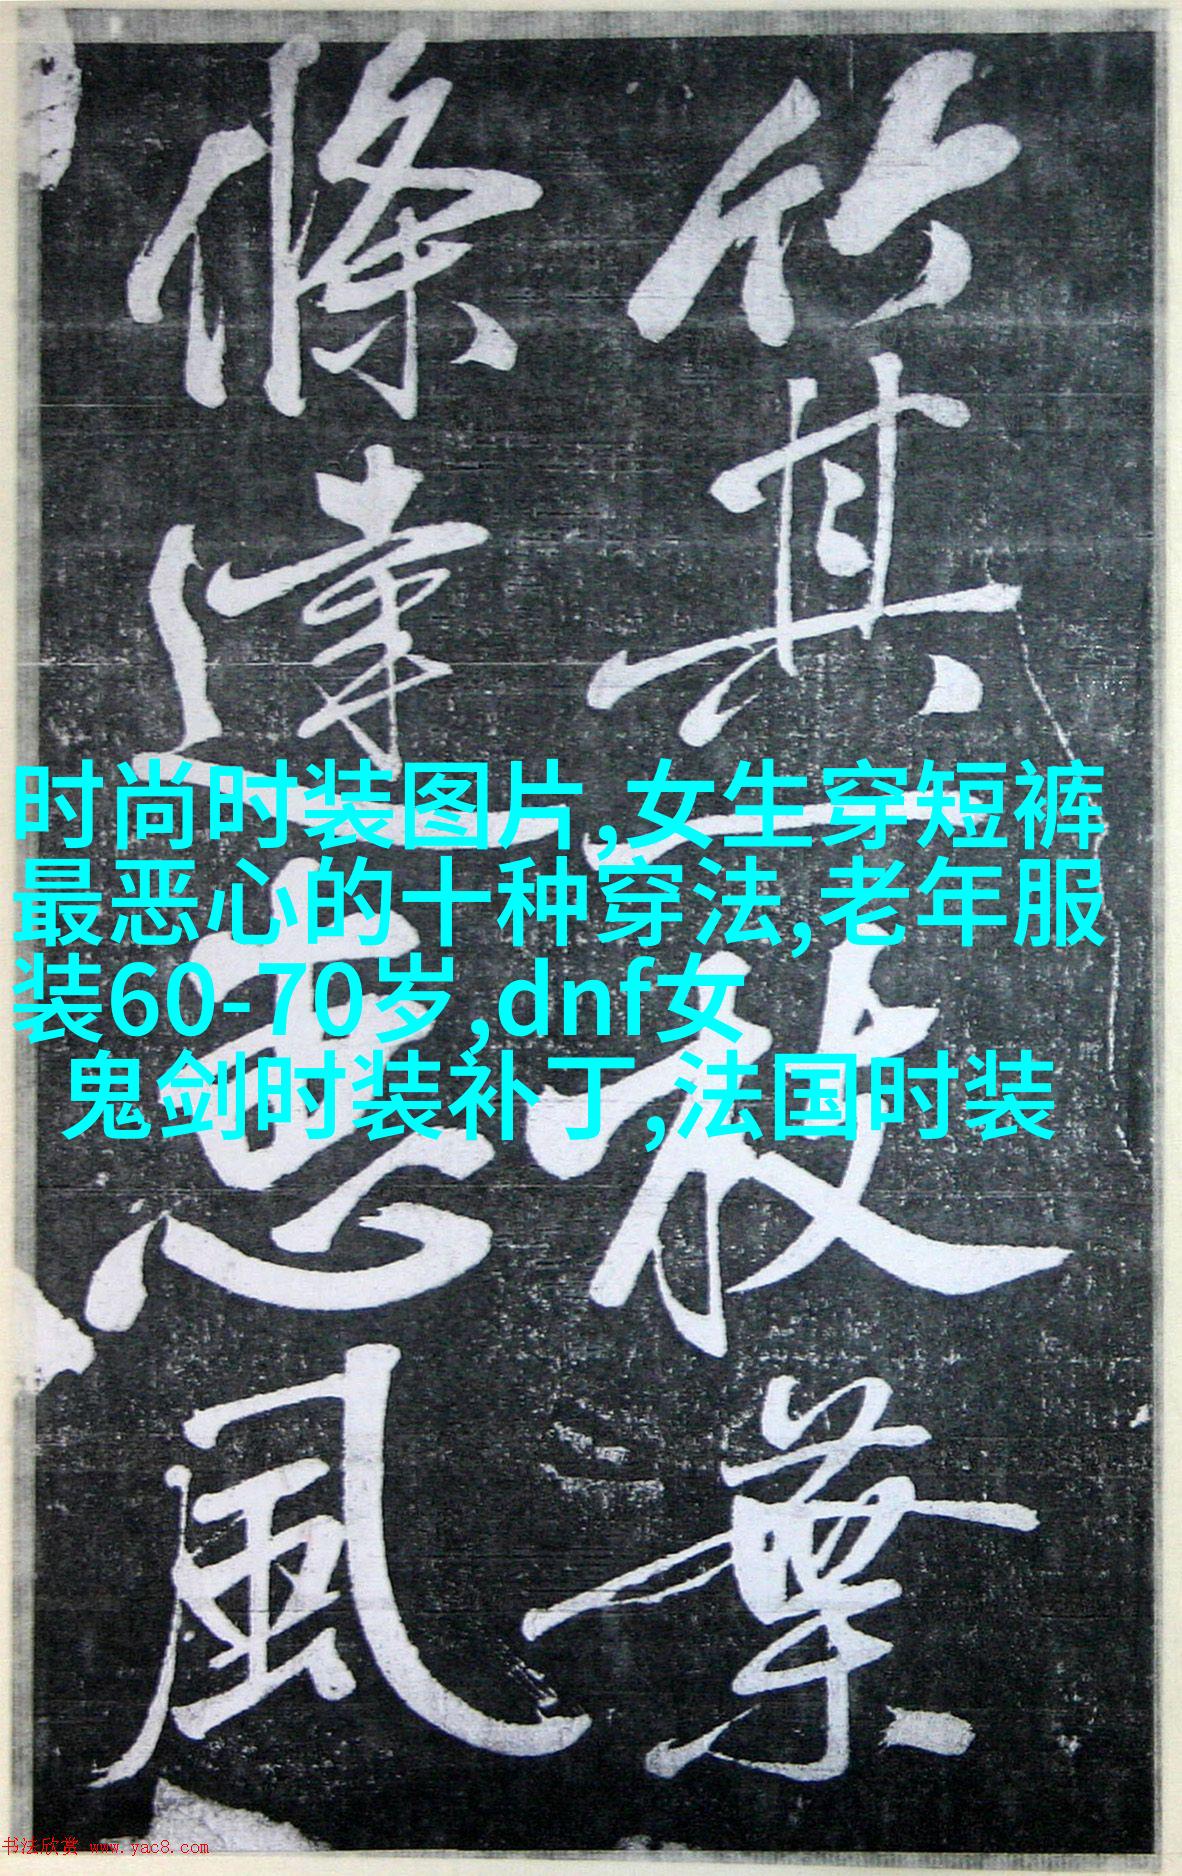 竹其一枝葉
條達風
时尚时装图片,女生穿短裤
最恶心的十种穿法,老年服
装60-70岁,dnf女
鬼剑时装补丁,法国时装
书法欣赏 www.yac8.com